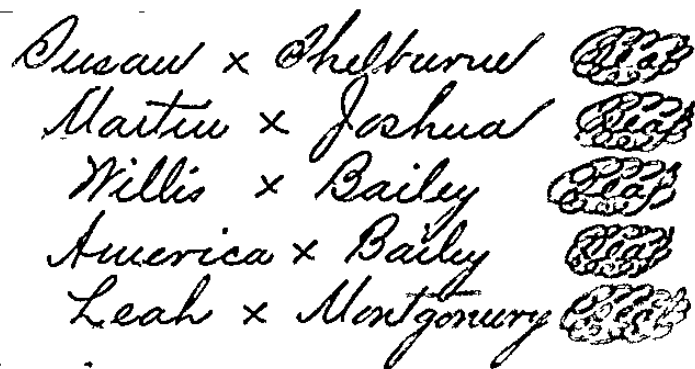 Susan x Shelburne Seal
Martin x Joshua Seal
Willis x Bailey Seal
America x Bailey Seal
Leah x Montgomery Seal